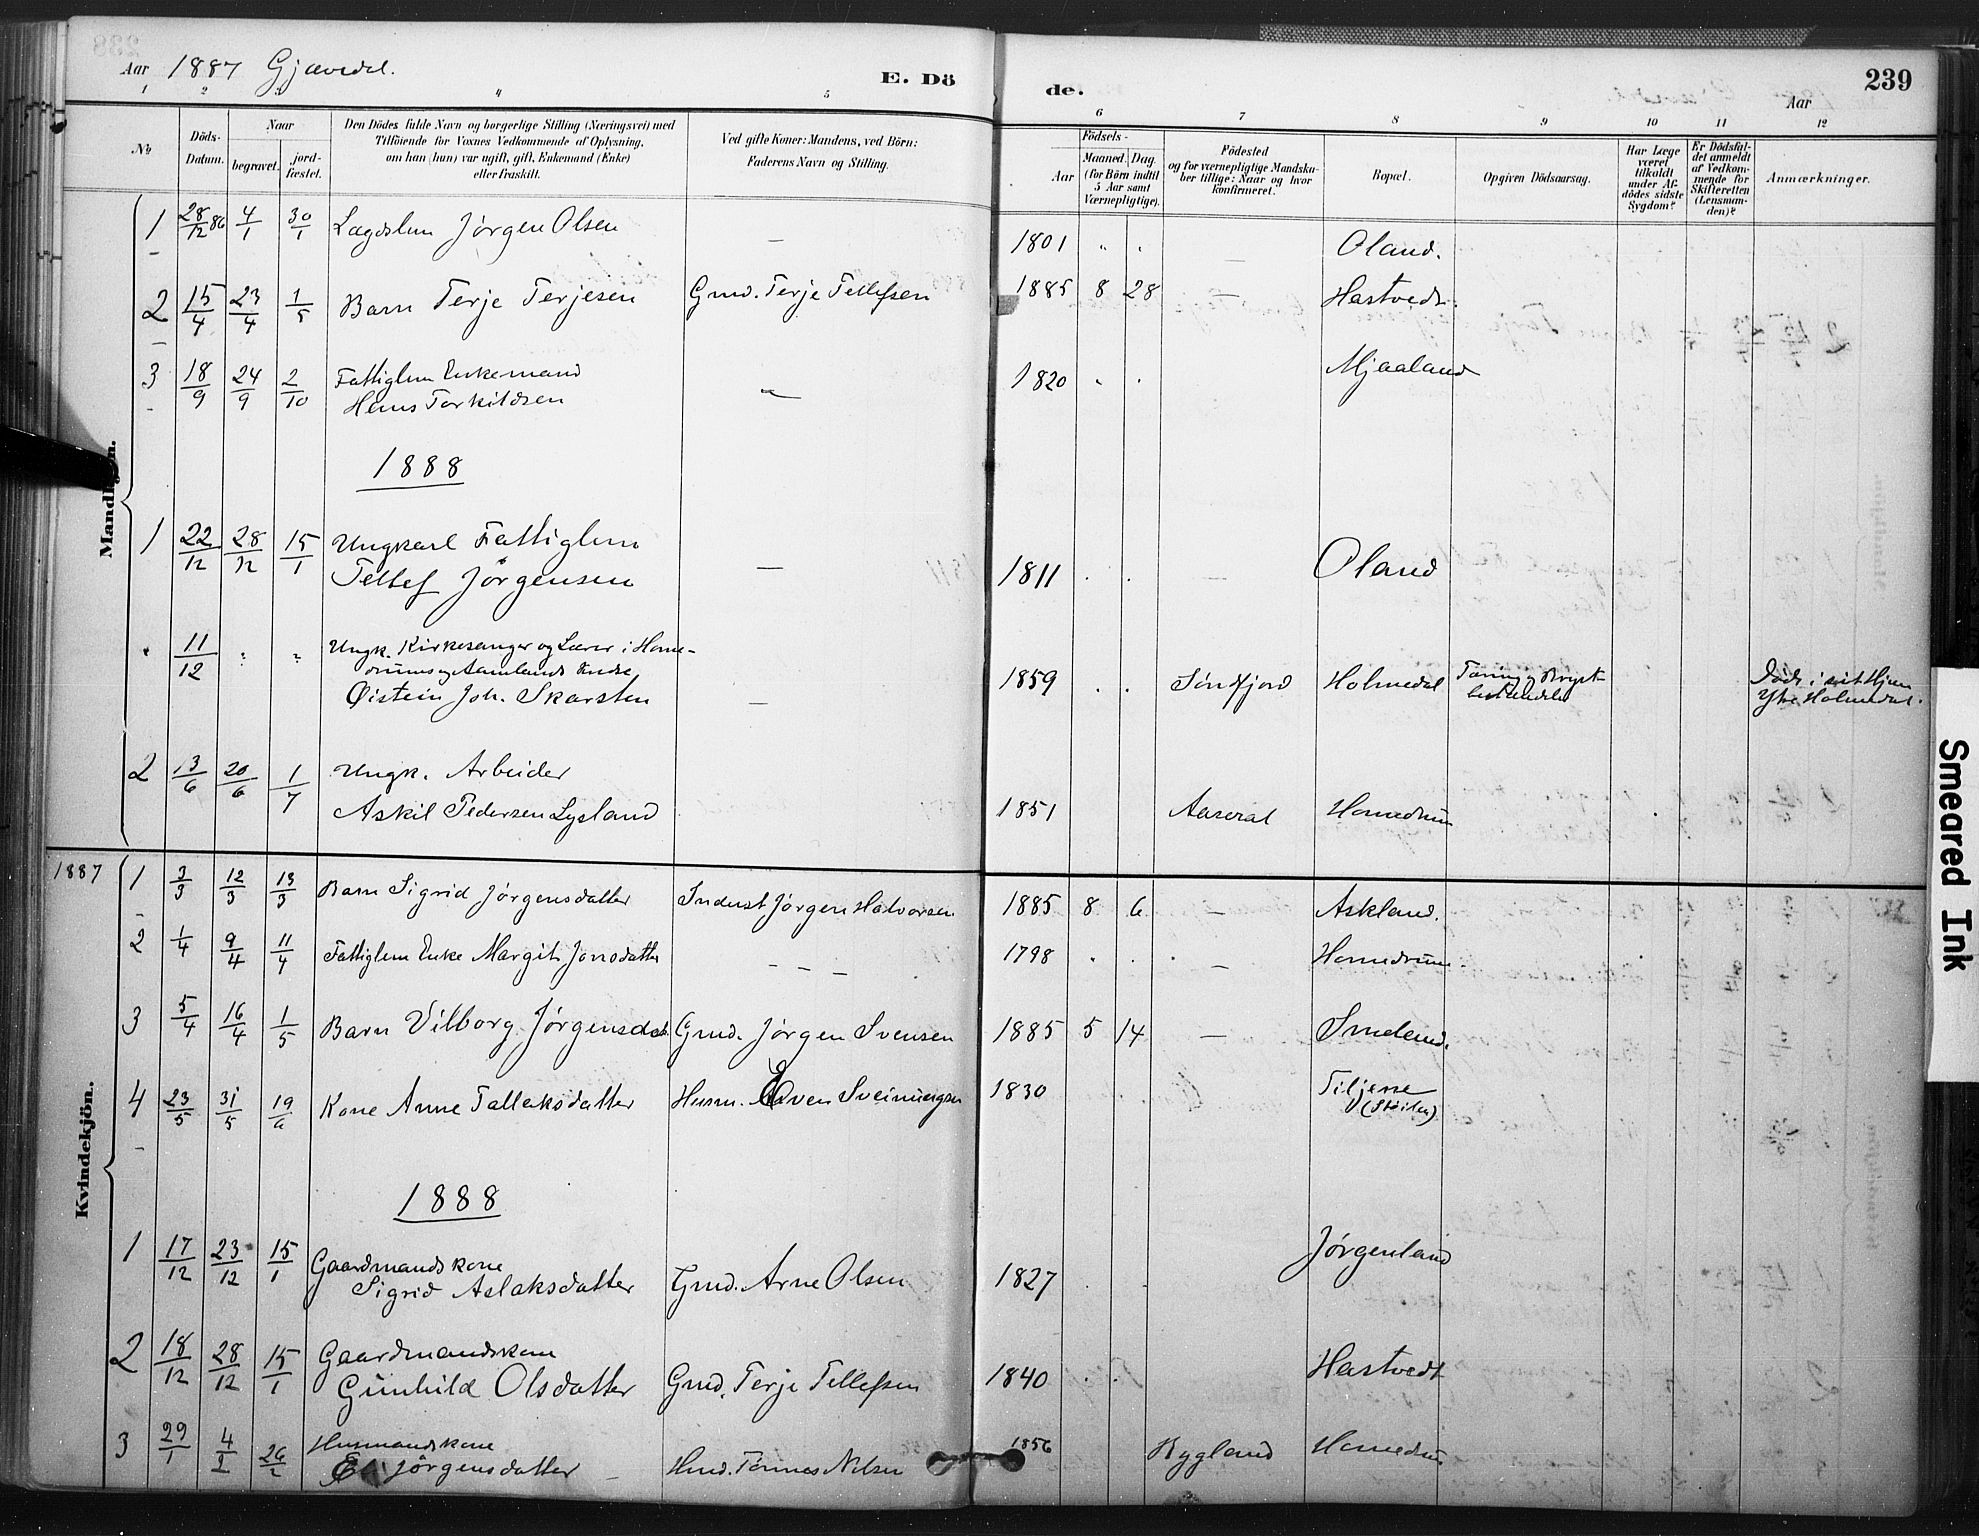 Aar 1887 Gjævedal. E. Dö
1 2 3 4 5
No
Döds-Datum.
Naar
begravet.
jord-fæstet.
Den Dödes fulde Navn og borgerlige Stilling (Næringsvei) med
Tilföiende for Voxnes Vedkommende af Oplysning,
om han (hun) var ugift, gift, Enkemand (Enke)
eller fraskilt.
Ved gifte Koner: Mandens, ved Börn:
Faderens Navn og Stilling.
de. Aar 239
6 7 8 9 10 11 12
Födsels-
Aar
Maaned. Dag.
(for Börn indtil
5 Aar samt
Værnepligtige).
Födested
og for værnepligtige Mandska-
ber tillige: Naar og hvor
konfirmeret.
Bopæl.
Opgiven Dödsaarsag.
Har Læge
været
tilkaldt
under Af-
dödes sidste
Sygdom?
Er Dödsfal-
det anmeldt
af Vedkom-
mende for
Skifteretten
(Lensman-
den)?
Anmærkninger.
Mandkjön.
1 28/12 86 4/1 30/1 Lægdslem Jørgen Olsen — 1801 " " — Oland.
2 15/4 23/4 1/5 Barn Terje Terjesen Gmd. Terje Tellefsen 1885 8 28 — Hastvedt.
3 18/9 24/9 2/10 Fattiglem Enkemand
Hans Torkildsen — 1820 " " Mjaaland
1888
1 22/12 28/12 15/1 Ungkarl Fattiglem
Tellef Jørgensen — 1811 . . — Oland
" 11/12 " " Ungk. Kirkesanger og Lærer i Home-
drums og Aamlands Kredse
Øistein Joh. Skarsten — 1859 . . Søndfjord Holmedal Tæring og Bryst-
Død i sit Hjem
Ytre Holmedal.
2 13/6 20/6 1/7 Ungk. Arbeider
Askil Pedersen Lysland 1851 Aaseral Homedrum
Kvindekjön.
1887
1 3/3 12/3 13/3 Barn Sigrid Jørgensdatter Inderst Jørgen Halvorsen 1885 8 6 — Askland.
2 1/4 9/4 11/4 Fattiglem Enke Margit Jonsdatter — — — 1798 . . . — Homedrum.
3 5/4 16/4 1/5 Barn Vilborg Jørgensdat. Gmd. Jørgen Svensen 1885 5 14 — Smeland.
4 23/5 31/5 19/6 Kone Anne Tallaksdatter Husm. Even Sveinungsen 1830 Tiljenne
1888
1 17/12 23/12 15/1 Gaardmandskone
Sigrid Aslaksdatter Gmd. Arne Olsen 1827 . Jørgenland
2 18/12 28/12 15/1 Gaardmandskone
Gunhild Olsdatter Gmd. Terje Tellefsen 1840 . . Hastvedt
3 29/1 4/2 26/2 Husmandskone
Jørgensdatter — Hmd. Tønnes Nilsen 1856 Bygland Homedrum
Smeared Ink